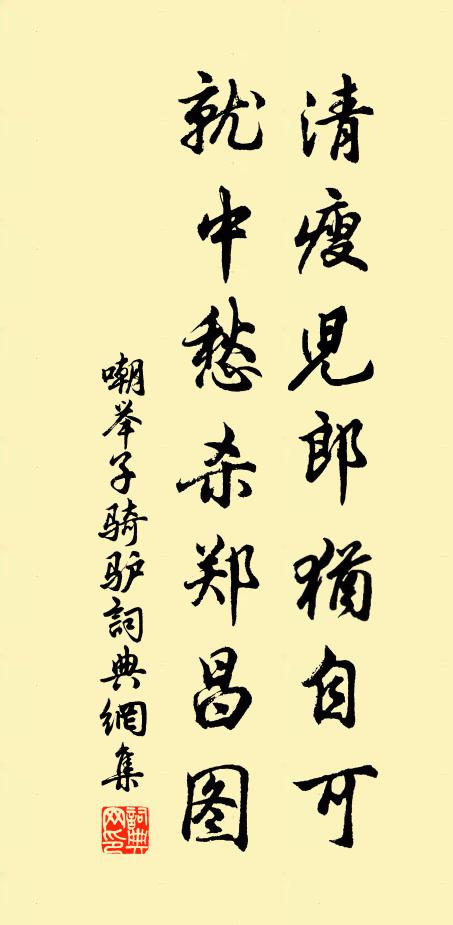 清瘦児郎猶自可
就中愁杀郑昌图
嘲举子骑驴詞典網集
詞典网印